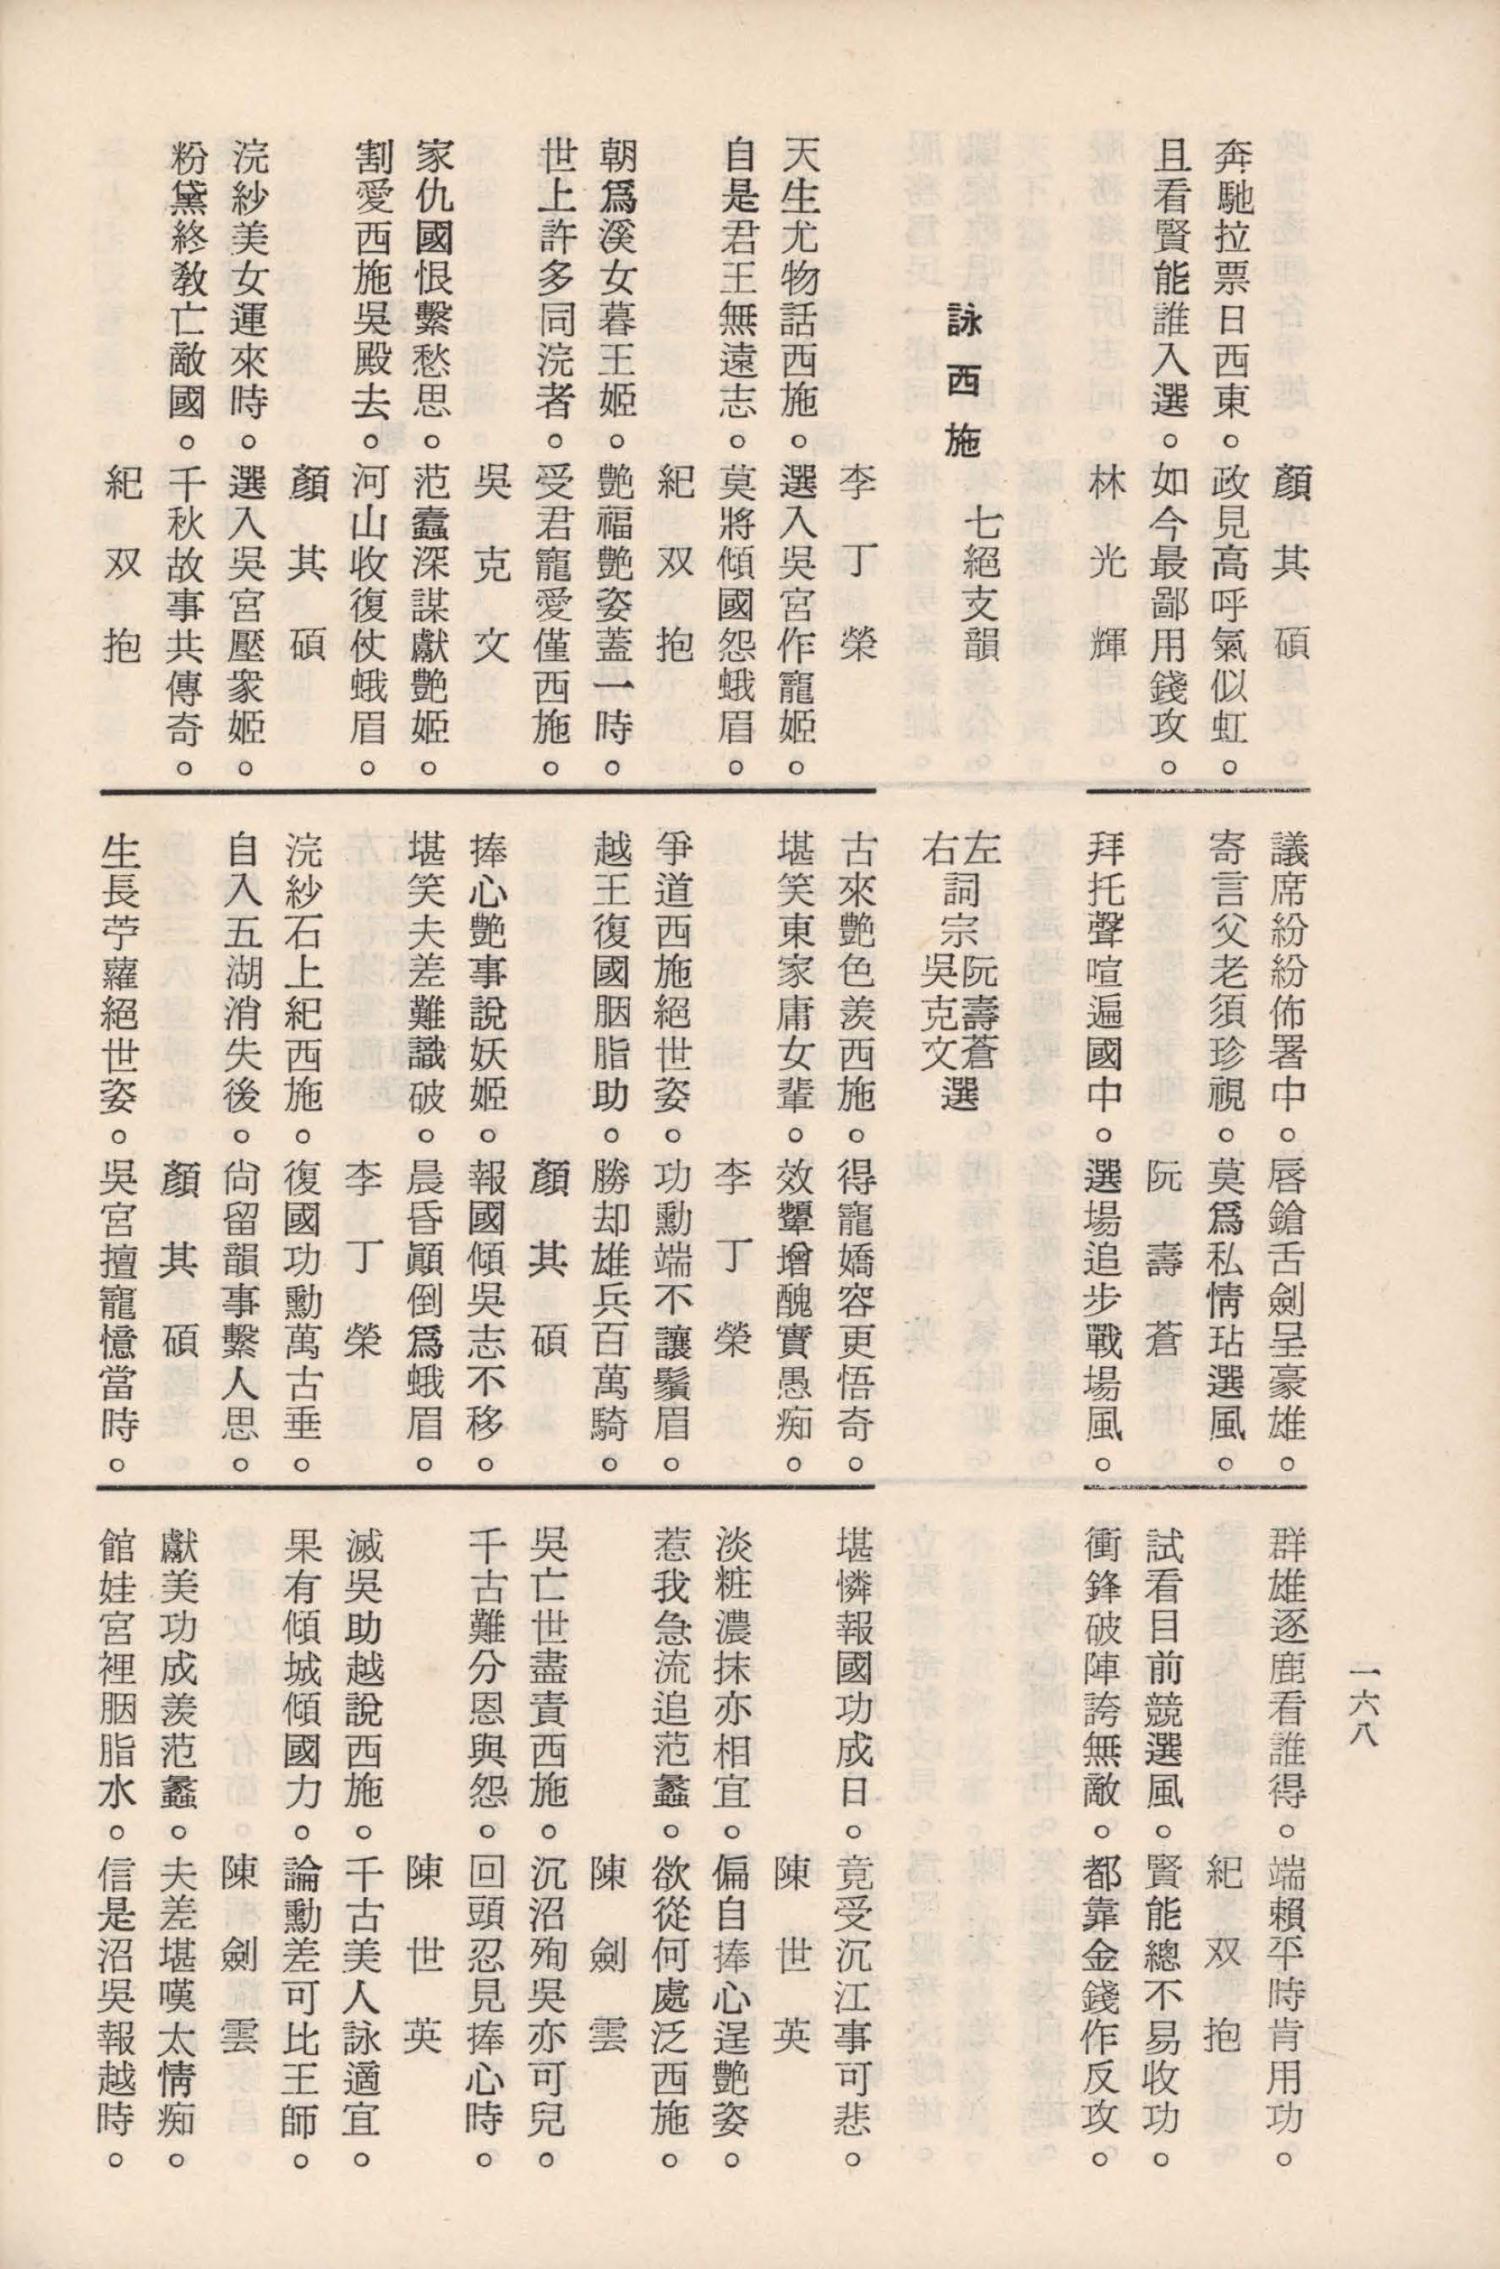 一六八
顏其碩
奔馳拉票日西東。政見高呼氣似虹。
且看賢能誰入選。如今最鄙用錢攻。
林光輝
議席紛紛佈署中。唇鎗舌劍呈豪雄。
寄言父老須珍視。莫爲私情玷選風。
阮壽蒼
拜托聲喧遍國中。選場追步戰場風。
群雄逐鹿看誰得。端賴平時肯用功。
紀双抱
試看目前競選風。賢能總不易收功。
衝鋒破陣誇無敵。都靠金錢作反攻。
詠西施 七絕支韻
左右詞宗 阮壽蒼 吳克文 選
李丁榮
天生尤物話西施。選入吳宮作寵姬。
自是君王無遠志。莫將傾國怨蛾眉。
紀双抱
朝爲溪女暮王姬。艷福艷姿蓋一時。
世上許多同浣者。受君寵愛僅西施。
吳克文
家仇國恨繫愁思。范蠡深謀獻艷姬。
割愛西施吳殿去。河山收復仗蛾眉。
顏其碩
浣紗美女運來時。選入吳宮壓衆姬。
粉黛終教亡敵國。千秋故事共傳奇。
紀双抱
古來艷色羨西施。得寵嬌容更悟奇。
堪笑東家庸女輩。效顰增醜實愚痴。
李丁榮
爭道西施絕世姿。功勳端不讓鬚眉。
越王復國胭脂助。勝却雄兵百萬騎。
顏其碩
捧心艷事說妖姬。報國傾吳志不移。
堪笑夫差難識破。晨昏顚倒爲蛾眉。
李丁榮
浣紗石上紀西施。復國功勳萬古垂。
自入五湖消失後。尙留韻事繫人思。
顏其碩
生長苧蘿絕世姿。吳宮擅寵憶當時。
堪憐報國功成日。竟受沉江事可悲。
陳世英
淡粧濃抹亦相宜。偏自捧心逞艷姿。
惹我急流追范蠡。欲從何處泛西施。
陳劍雲
吳亡世盡責西施。沉沼殉吳亦可兒。
千古難分恩與怨。回頭忍見捧心時。
陳世英
滅吳助越說西施。千古美人詠適宜。
果有傾城傾國力。論勳差可比王師。
陳劍雲
獻美功成羨范蠡。夫差堪嘆太情痴。
館娃宮裡胭脂水。信是沼吳報越時。